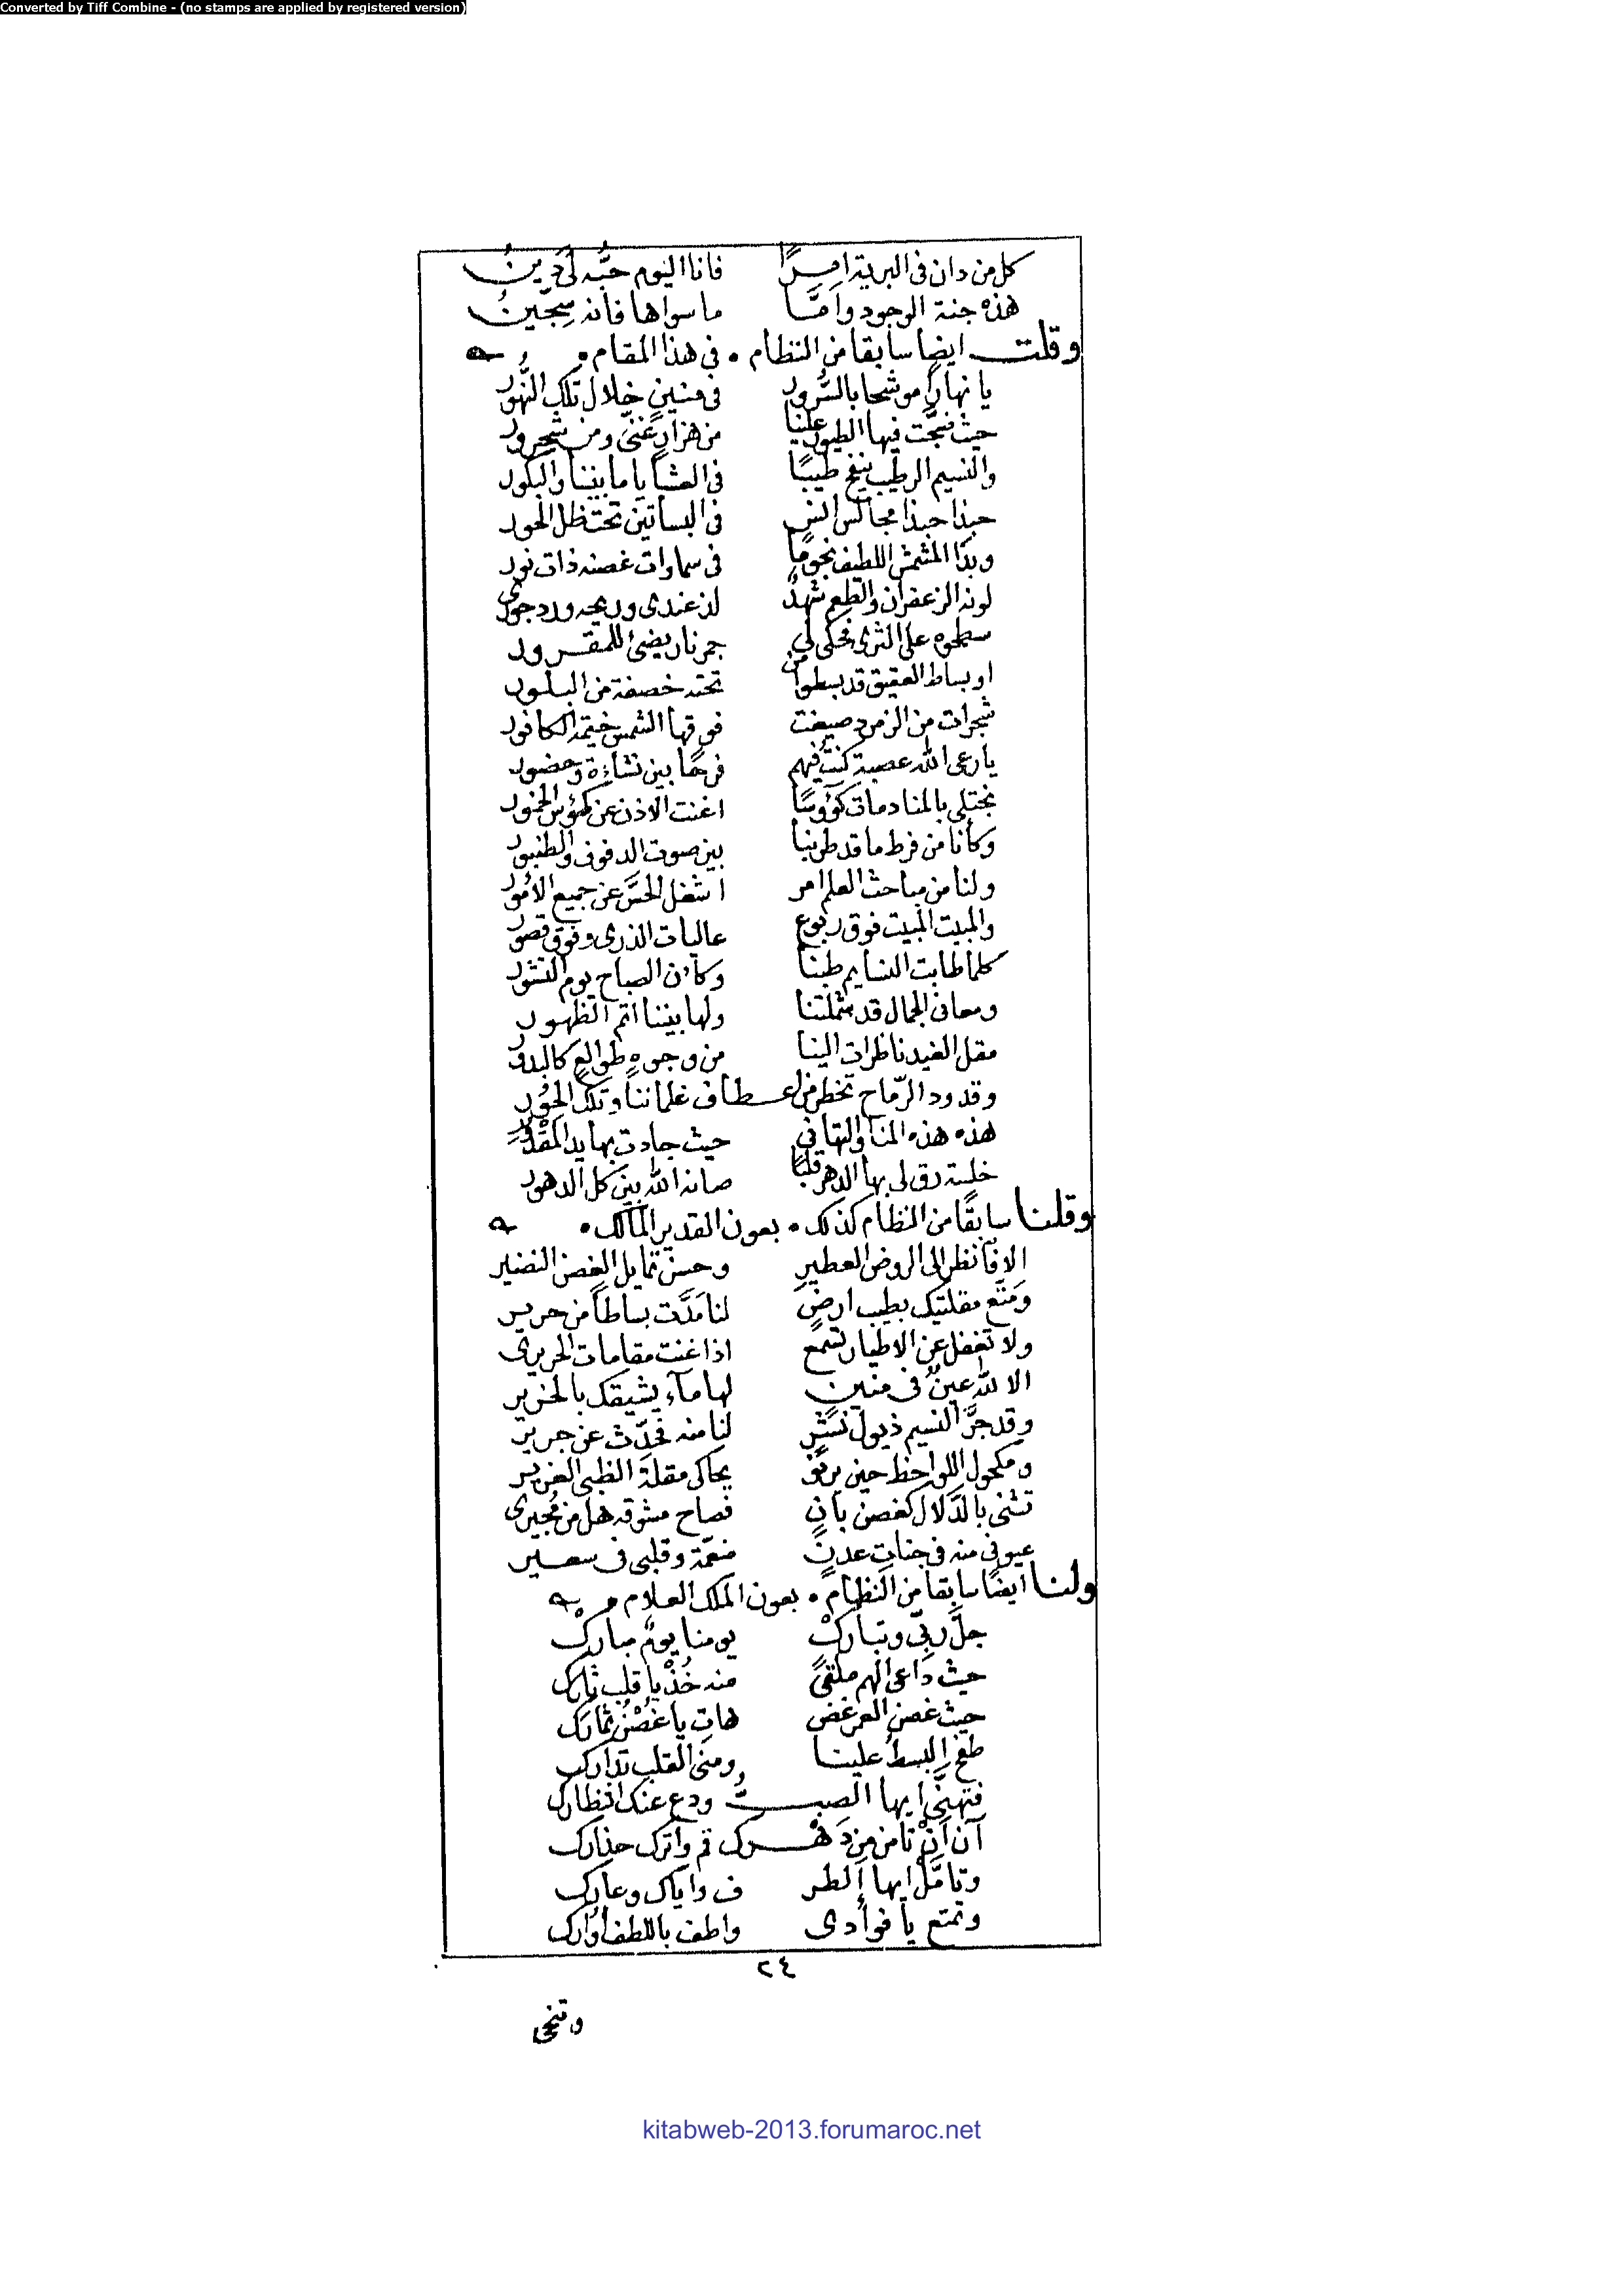 Converted by Tiff Combine - (no stamps are applied by registered version)
كل من دان فى البرية امرًا فانا اليوم حبُّه لىَ دينُ
هذه جنة الوجود وامَّا ما سواها فانه سِجّينُ
وقلت ايضا سابقا من النظام • فى هذا المقام •
يا نهارا موشحا بالسُّرور فى منينٍ خلال تلك النُّهور
حيث ضجّت فيها الطيور علينا من هزارٍ غنىّ ومن شحرور
والنسيم الرطيب ينفخ طيبًا فى العشايا ما بيننا والبكور
حبذا حبذا مجالس انس فى البساتين تحت ظل الحور
وبدا المشمش اللطيف نجومًا فى سماوات غصنه ذات نور
لونه الزعفران والطعم شهدٌ لذ عندى وريحه ورد جورى
سطحوه على الثرى فحكى لى جمر نار يضئ للمقرور
او بساط العقيق قد بسطوا من تحته خصفة من البلور
شجرات من الزمرد صيغت فوقها الشمس خيمة الكافور
يا رعى الله عصبة كنتُ فيهم فرحًا بين نشاءة وحضور
نجتلى بالمنادمات كؤوسًا اغنت الاذن عن كؤس الخمور
وكأنا من فرط ما قد طربنا بين صوت الدفوف والطنبور
ولنا من مباحث العلم امر اشغل الحسّ عن جميع الامور
والمبيت المبيت فوق ربوع عاليات الذرى وفوق قصور
كلما طابت النسايم طبنا وكأن الصباح يوم النشور
ومعانى الجمال قد شملتنا ولها بيننا اتم الظهور
مقل الغيد ناظرات الينا من وجوهٍ طوالعٍ كالبدور
وقدود الرّماح تخطر من اعطاف غلماننا وتلك الحُور
هذه هذه المنا والتهانى حيث جادت بها يد المقدور
خلسة رق لى بها الدهر قلبًا صانه الله بين كل الدهور
وقلنا سابقًا من النظام كذلك • بعون القدير المالك •
الا فانظر الى الروض العطير وحسن تمايل الغصن النضير
ومتّع مقلتيك بطيب ارضٍ لنا مَدَّت بساطاً من حرير
ولا تغفل عن الاطيار تسمع اذا غنت مقامات الحريرى
الا لله عينٌ فى منين لها مآء يشيقك بالخرير
وقد جرَّ النسيم ذيول نشرٍ لنا منه فحدّث عن جرير
ومكحول اللواحظ حين يرنو يحاكى مقلة الظبى الغرير
تثنى بالدَّلال كغصن بانٍ فصاح مشوقه هل من مُجيرى
عيونى منه فى جنات عدنٍ منعّمة وقلبى فى سعير
ولنا ايضًا سابقا من النظام • بعون الملك العلام •
جلَّ ربّى وتباركْ يومنا يومٌ مبارك
حيث داعى الهم ملقىً منه خُذْ يا قلب ثارك
حيث غصن العمر غض هاتِ يا غُصْنُ ثمارك
طفح البسطُ علينا ومنى القلب تدارك
فتهنَّى ايها الصبّ ودع عنك انتظارك
آن اَنْ تامن من دَهْرك قم واترك حذارك
وتامَّل ايها الطر ف واياك وعارك
وتمتع يا فوادى واطف باللطف اوارك
٢٤
وتنحى
kitabweb-2013.forumaroc.net